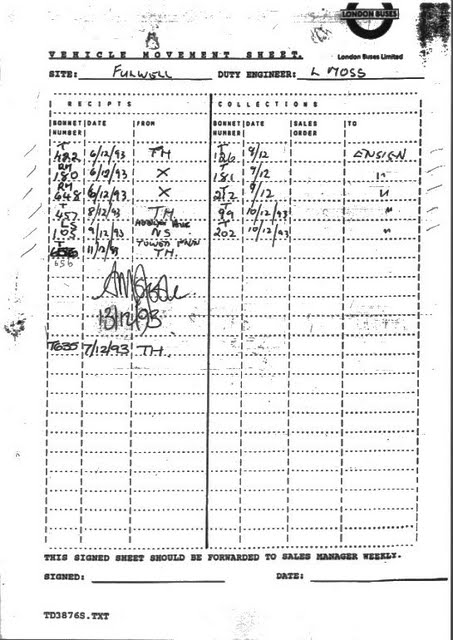 LONDON BUSES
VEHICLE MOVEMENT SHEET.
London Buses Limited
SITE: FULWELL DUTY ENGINEER: L MOSS
RECEIPTS COLLECTIONS
BONNET NUMBER DATE FROM BONNET NUMBER DATE SALES ORDER TO
T 482 6/12/93 TH T 9/12 ENSIGN
RM 180 6/12/93 X T 181 9/12 "
RM 648 6/12/93 X T 212 9/12 "
T 457 8/12/93 TH. T 99 10/12/93 "
LS 102 9/12/93 NS T 202 10/12/93 "
T 656 11/12/93 TOWED FROM TH.
656
13/12/93
T635 7/12/93 TH.
THIS SIGNED SHEET SHOULD BE FORWARDED TO SALES MANAGER WEEKLY.
SIGNED: DATE:
TD3876S.TXT